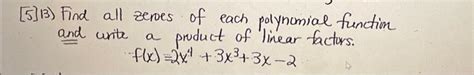 [5]13) Find all zeroes of each polynomial function
and write a product of linear factors.
f(x)=2x⁴ + 3x³ + 3x - 2